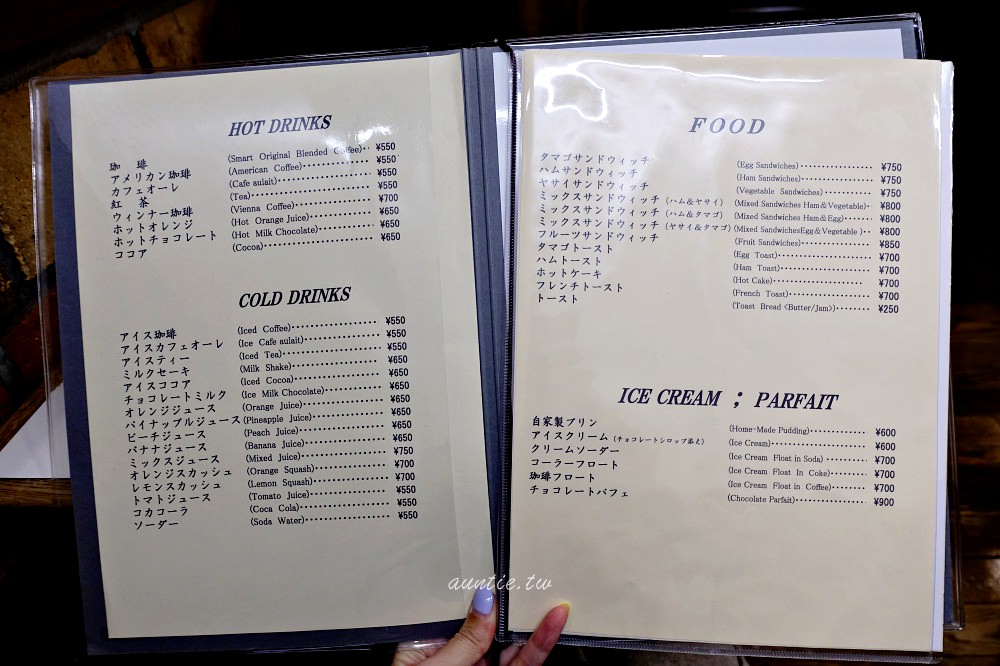 HOT DRINKS
珈 琲 (Smart Original Blended Coffee)‥ ¥550
アメリカン珈琲 (American Coffee)………… ¥550
カフェオーレ (Cafe aulait)………… ¥550
紅 茶 (Tea)………… ¥550
ウィンナー珈琲 (Vienna Coffee)………… ¥700
ホットオレンジ (Hot Orange Juice)………… ¥650
ホットチョコレート (Hot Milk Chocolate)………… ¥650
ココア (Cocoa)………… ¥650
COLD DRINKS
アイス珈琲 (Iced Coffee)………… ¥550
アイスカフェオーレ (Ice Cafe aulait)………… ¥550
アイスティー (Iced Tea)………… ¥550
ミルクセーキ (Milk Shake)………… ¥650
アイスココア (Iced Cocoa)………… ¥650
チョコレートミルク (Ice Milk Chocolate)………… ¥650
オレンジジュース (Orange Juice)………… ¥650
パイナップルジュース (Pineapple Juice)………… ¥650
ピーチジュース (Peach Juice)………… ¥650
バナナジュース (Banana Juice)………… ¥650
ミックスジュース (Mixed Juice)………… ¥750
オレンジスカッシュ (Orange Squash)………… ¥700
レモンスカッシュ (Lemon Squash)………… ¥700
トマトジュース (Tomato Juice)………… ¥550
コカコーラ (Coca Cola)………… ¥550
ソーダー (Soda Water)………… ¥550
FOOD
タマゴサンドウィッチ (Egg Sandwiches)………… ¥750
ハムサンドウィッチ (Ham Sandwiches)………… ¥750
ヤサイサンドウィッチ (Vegetable Sandwiches)………… ¥750
ミックスサンドウィッチ (ハム&ヤサイ) (Mixed Sandwiches Ham&Vegetable)‥ ¥800
ミックスサンドウィッチ (ハム&タマゴ) (Mixed Sandwiches Ham&Egg)………… ¥800
ミックスサンドウィッチ (ヤサイ&タマゴ) (Mixed SandwichesEgg&Vegetable )‥ ¥800
フルーツサンドウィッチ (Fruit Sandwiches)………… ¥850
タマゴトースト (Egg Toast)………… ¥700
ハムトースト (Ham Toast)………… ¥700
ホットケーキ (Hot Cake)………… ¥700
フレンチトースト (French Toast)………… ¥700
トースト (Toast Bread <Butter/Jam>)………… ¥250
ICE CREAM ; PARFAIT
自家製プリン (Home-Made Pudding)………… ¥600
アイスクリーム (チョコレートシロップ添え) (Ice Cream)………… ¥600
クリームソーダー (Ice Cream Float in Soda)………… ¥700
コーラーフロート (Ice Cream Float In Coke)………… ¥700
珈琲フロート (Ice Cream Float in Coffee)………… ¥700
チョコレートパフェ (Chocolate Parfait)………… ¥900
auntie.tw